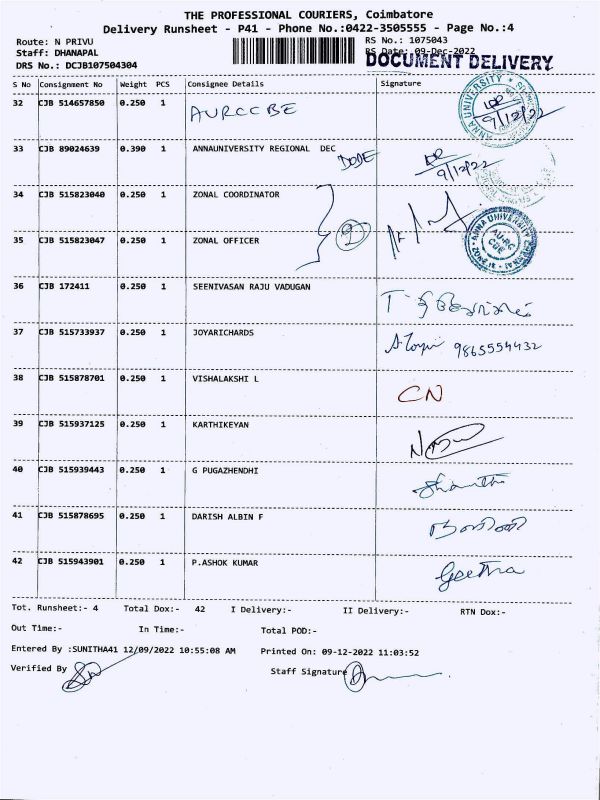 THE PROFESSIONAL COURIERS, Coimbatore
Delivery Runsheet - P41 - Phone No.:0422-3505555 - Page No.:4
Route: N PRIVU RS No.: 1075043
Staff: DHANAPAL RS Date: 09-Dec-2022
DOCUMENT DELIVERY
DRS No.: DCJB107504304
S No Consignment No Weight PCS Consignee Details Signature
32 CJB 514657850 0.250 1 AURCCBE 9/12/22
ANNA UNIVERSITY
33 CJB 89024639 0.390 1 ANNAUNIVERSITY REGIONAL DEC DODE 9/12/22
34 CJB 515823040 0.250 1 ZONAL COORDINATOR
2
ANNA UNIVERSITY AU-RC CBE
35 CJB 515823047 0.250 1 ZONAL OFFICER
36 CJB 172411 0.250 1 SEENIVASAN RAJU VADUGAN
37 CJB 515733937 0.250 1 JOYARICHARDS 9865554432
38 CJB 515878701 0.250 1 VISHALAKSHI L CN
39 CJB 515937125 0.250 1 KARTHIKEYAN
40 CJB 515939443 0.250 1 G PUGAZHENDHI Shanthi
41 CJB 515878695 0.250 1 DARISH ALBIN F நளினி
42 CJB 515943901 0.250 1 P.ASHOK KUMAR Geetha
Tot. Runsheet:- 4 Total Dox:- 42 I Delivery:- II Delivery:- RTN Dox:-
Out Time:- In Time:- Total POD:-
Entered By :SUNITHA41 12/09/2022 10:55:08 AM Printed On: 09-12-2022 11:03:52
Verified By Staff Signature